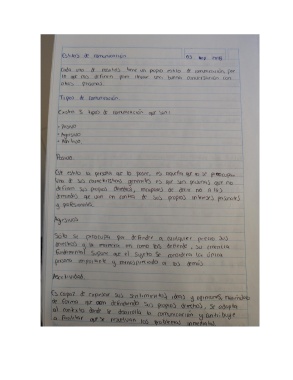 Estilos de comunicación
Cada uno de nosotros tiene un propio estilo de comunicación, por
lo que nos definen para tener una buena comunicación con
otras personas.
Tipos de comunicación.
Existen 3 tipos de comunicación que son:
- Pasivo
- Agresivo
- Asertivo
Pasivo
Este estilo la persona que lo posee, es aquella que no se preocupa
Una de sus características generales es que son personas que no
definen sus propios derechos, incapaces de decir no a las
demandas que van en contra de sus propios intereses personales
y profesionales.
Agresivo
Solo se preocupa por defender a cualquier precio sus
derechos y la manera en como los defiende, su
fundamental suponer que el sujeto se considera la única
persona importante y menospreciando a los demás
Asertividad
Es capaz de expresar sus sentimientos, ideas y opiniones
de forma que van defendiendo sus propios derechos, se adapta
al contexto donde se desarrolla la comunicación y contribuye
a facilitar que se resuelvan los problemas